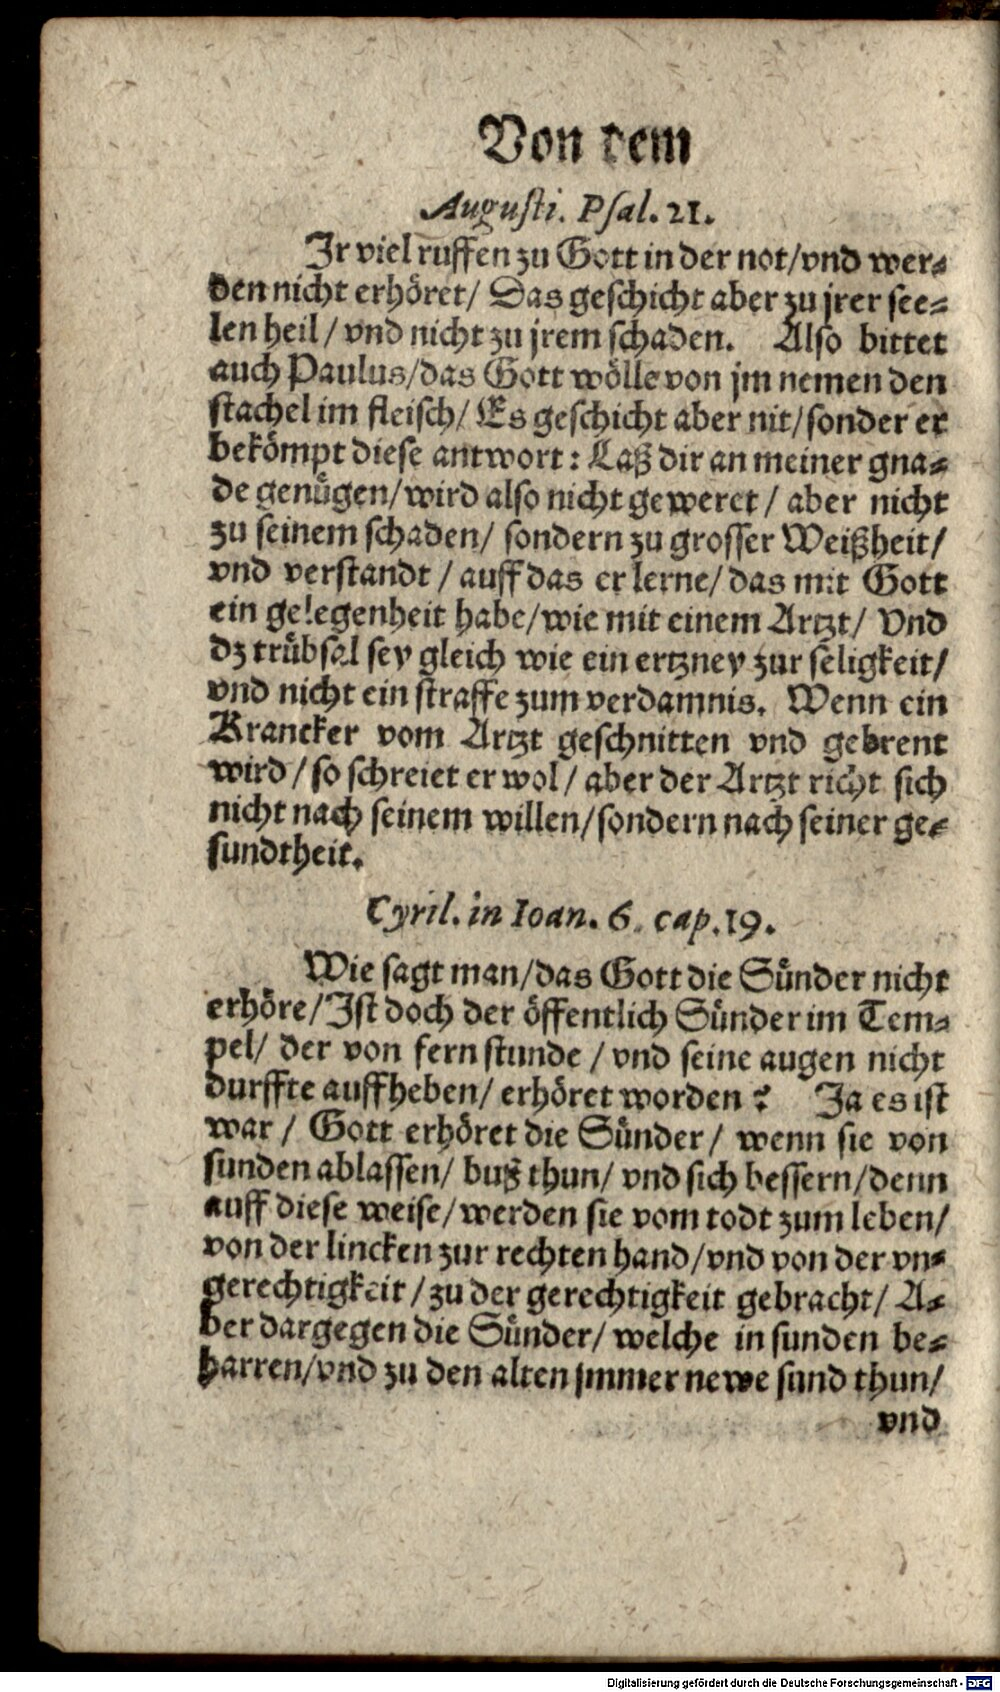 Von dem
Augusti. Psal. 21.
Jr viel ruffen zu Gott in der not/vnd wer-
den nicht erhöret/ Das geschicht aber zu jrer see-
len heil / vnd nicht zu jrem schaden. Also bittet
auch Paulus/das Gott wölle von jm nemen den
stachel im fleisch/ Es geschicht aber nit/sonder er
bekömpt diese antwort: Laß dir an meiner gna-
de genügen/wird also nicht geweret / aber nicht
zu seinem schaden/ sondern zu grosser Weißheit/
vnd verstandt / auff das er lerne/ das mit Gott
ein gelegenheit habe/wie mit einem Artzt/ Vnd
dz trübsal sey gleich wie ein ertzney zur seligkeit/
vnd nicht ein straffe zum verdamnis. Wenn ein
Krancker vom Artzt geschnitten vnd gebrent
wird / so schreiet er wol / aber der Artzt richt sich
nicht nach seinem willen/sondern nach seiner ge-
sundtheit.
Cyril. in Ioan. 6. cap. 19.
Wie sagt man/das Gott die Sünder nicht
erhöre/Ist doch der öffentlich Sünder im Tem-
pel/ der von fern stunde / vnd seine augen nicht
durffte auffheben/ erhöret worden? Ja es ist
war / Gott erhöret die Sünder/ wenn sie von
sunden ablassen/ buß thun/ vnd sich bessern/denn
auff diese weise/werden sie vom todt zum leben/
von der lincken zur rechten hand/vnd von der vn-
gerechtigkeit / zu der gerechtigkeit gebracht/ A-
ber dargegen die Sünder/ welche in sunden be-
harren/vnd zu den alten jmmer newe sund thun/
vnd
Digitalisierung gefördert durch die Deutsche Forschungsgemeinschaft - DFG